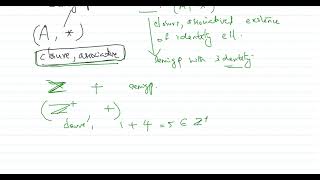 (A, *)
closure, associative
closure, associatived existence
of identity ell.
semigp with identity
ℤ + semigp.
(ℤ⁺ +)
closure, 1 + 4 = 5 ∈ ℤ⁺